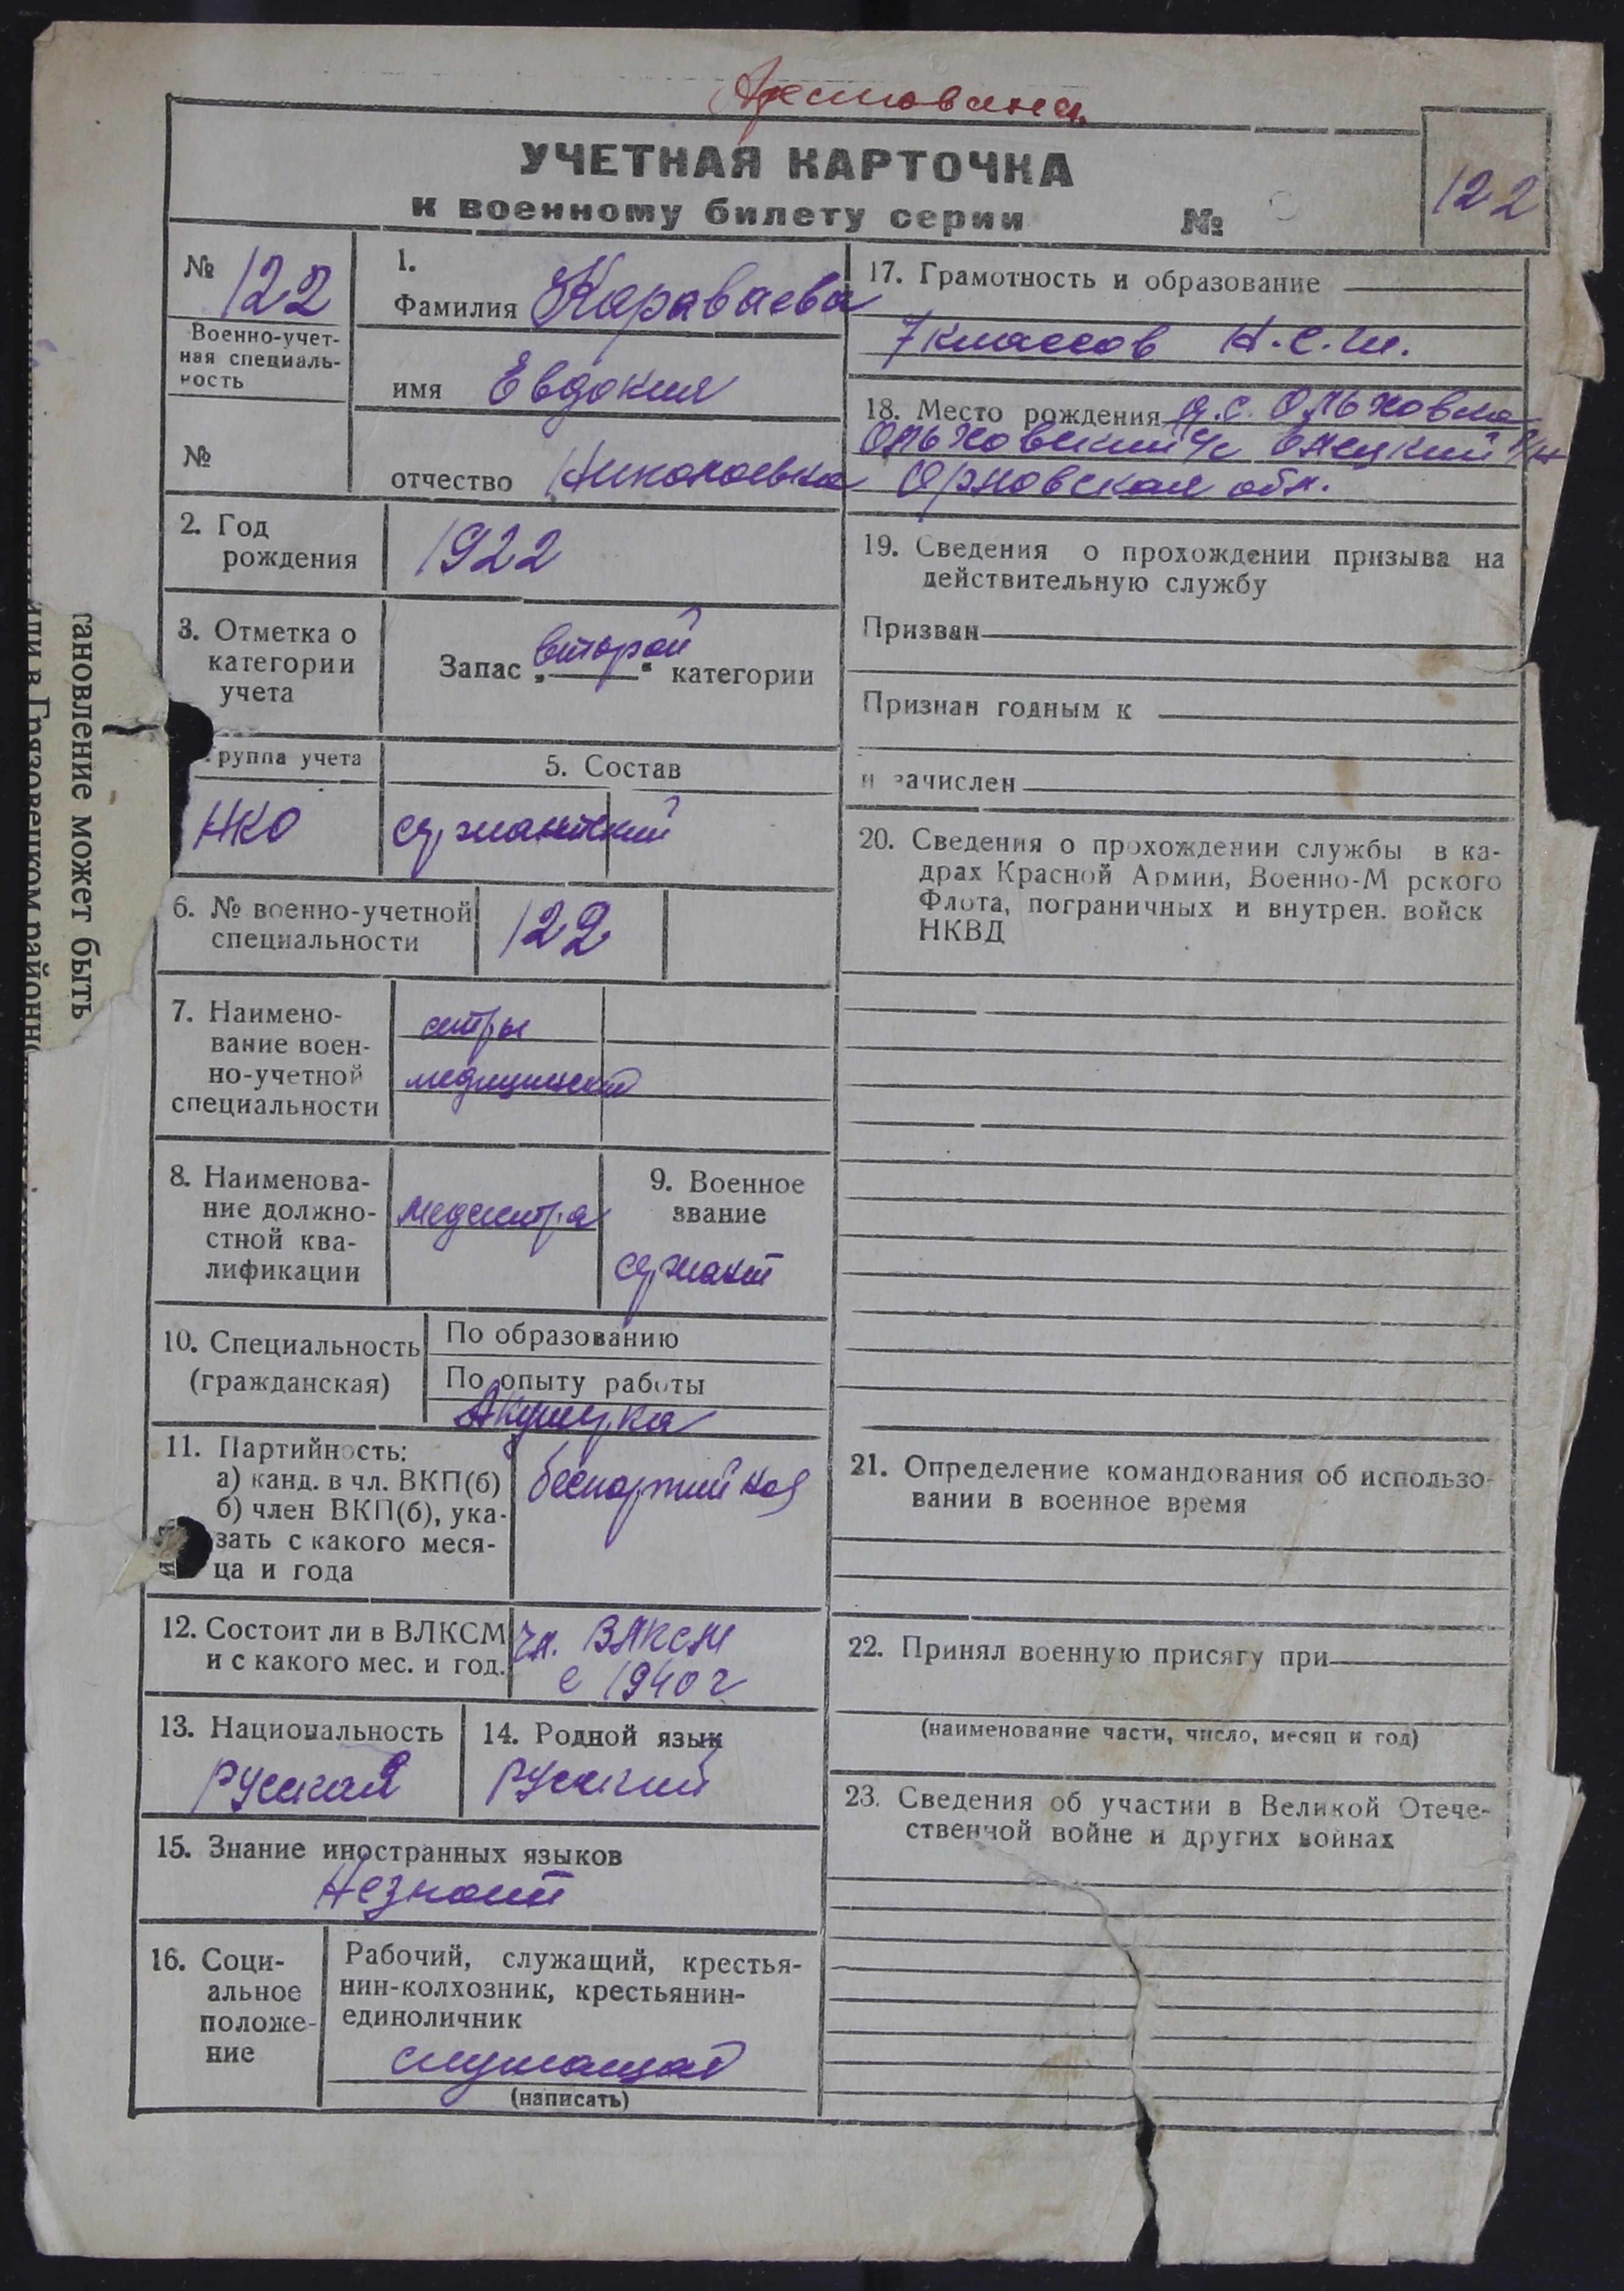 Арестована.
УЧЕТНАЯ КАРТОЧКА
к военному билету серии №
122
№ 122
Военно-учет-
ная специаль-
ность
№
1.
Фамилия Караваева
имя Евдокия
отчество Николаевна
2. Год
рождения
1922
3. Отметка о
категории
учета
Запас „второй“ категории
группа учета
НКО
5. Состав
сержантский
6. № военно-учетной
специальности
122
7. Наимено-
вание воен-
но-учетной
специальности
сестры
медицинской
8. Наименова-
ние должно-
стной ква-
лификации
медсестра
9. Военное
звание
сержант
10. Специальность
(гражданская)
По образованию
По опыту работы
Акушерка
11. Партийность:
а) канд. в чл. ВКП(б)
б) член ВКП(б), ука-
зать с какого меся-
ца и года
беспартийная
12. Состоит ли в ВЛКСМ
и с какого мес. и год.
чл. ВЛКСМ
с 1940 г
13. Национальность
русская
14. Родной язык
русский
15. Знание иностранных языков
Незнает
16. Соци-
альное
положе-
ние
Рабочий, служащий, крестья-
нин-колхозник, крестьянин-
единоличник
служащая
(написать)
17. Грамотность и образование
7 классов Н.С.Ш.
18. Место рождения Ольховка
Ольховский с/с Елецкий р/н
Орловская обл.
19. Сведения о прохождении призыва на
действительную службу
Призван
Признан годным к
и зачислен
20. Сведения о прохождении службы в ка-
драх Красной Армии, Военно-М рского
Флота, пограничных и внутрен. войск
НКВД
21. Определение командования об использо-
вании в военное время
22. Принял военную присягу при
(наименование части, число, месяц и год)
23. Сведения об участии в Великой Отече-
ственной войне и других войнах
тановление может быть
или в Грязовецком районн